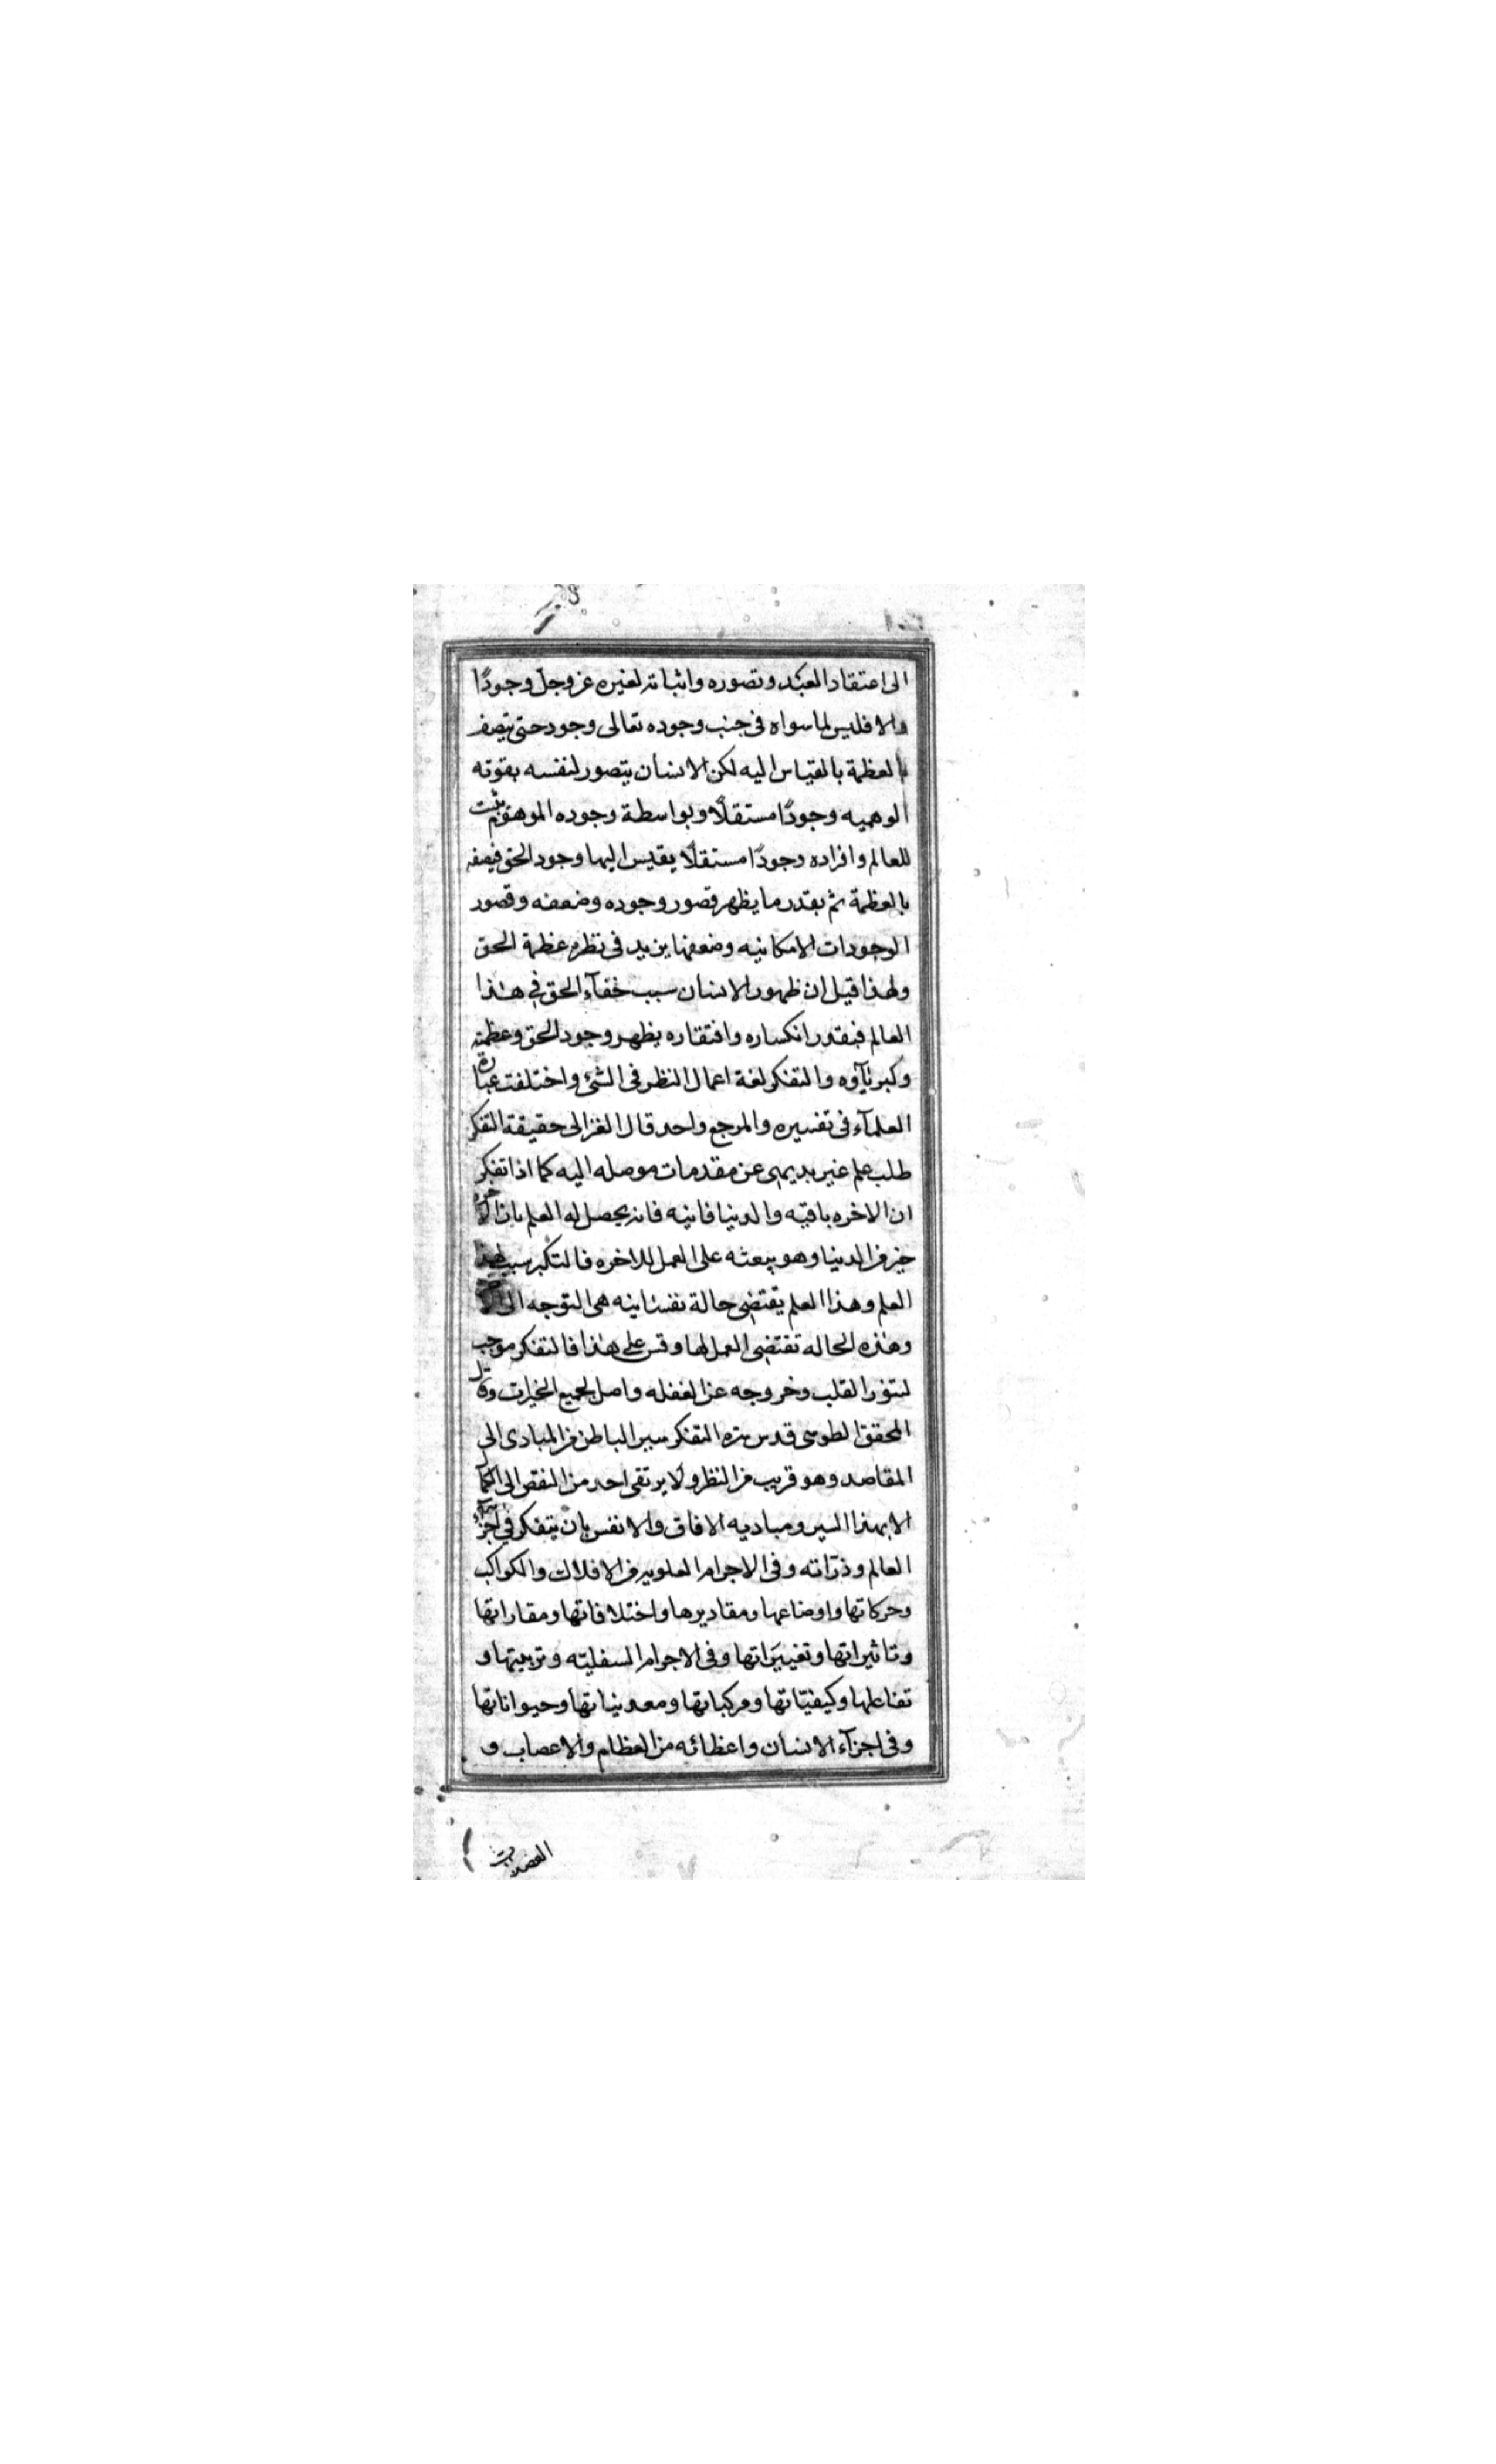 الى اعتقاد العبد وتصوره واثباته لغيره عز وجل وجودًا
والا فليس لما سواه فى جنب وجوده تعالى وجود حتى يتصف
بالعظمة بالقياس اليه لكن الانسان يتصور لنفسه بقوته
الوهميه وجودًا مستقلًا وبواسطة وجوده الموهوم يثبت
للعالم وافراده وجودًا مستقلًا يقيس اليها وجود الحق فيصفه
بالعظمة ثم بقدر ما يظهر قصور وجوده وضعفه وقصور
الوجودات الامكانيه وضعفها يزيد فى نظره عظمة الحق
ولهذا قيل ان ظهور الانسان سبب خفآء الحق فى هذا
العالم فبقدر انكساره وافتقاره يظهر وجود الحق وعظمته
وكبريآؤه والتفكر لغة اعمال النظر فى الشئ واختلفت عبارة
العلمآء فى تفسيره والمرجع واحد قال الغزالى حقيقة التفكر
طلب علم غير بديهى عن مقدمات موصله اليه كما اذا تفكر
ان الاخره باقيه والدنيا فانيه فانه يحصل له العلم بان الاخره
خير من الدنيا وهو يبعثه على العمل للاخره فالتكبر سبب لهذا
العلم وهذا العلم يقتضى حالة نفسانيه هى التوجه الى
وهذه الحاله تقتضى العمل لها وقس على هذا فالتفكر موجب
لتنور القلب وخروجه عن الغفله واصل لجميع الخيرات وقال
المحقق الطوسى قدس سره التفكر سير الباطن من المبادى الى
المقاصد وهو قريب من النظر ولا يرتقى احد من النقص الى الكمال
الا بهذا السير ومباديه الافاق والانفس بان يتفكر فى اجزآء
العالم وذراته وفى الاجرام العلويه من الافلاك والكواكب
وحركاتها واوضاعها ومقاديرها واختلافاتها ومقاراتها
وتاثيراتها وتغييراتها وفى الاجرام السفليته وترتيبها و
تفاعلها وكيفيّاتها ومركباتها ومعدنياتها وحيواناتها
وفى اجزآء الانسان واعظائه من العظام والاعصاب و
العضلات